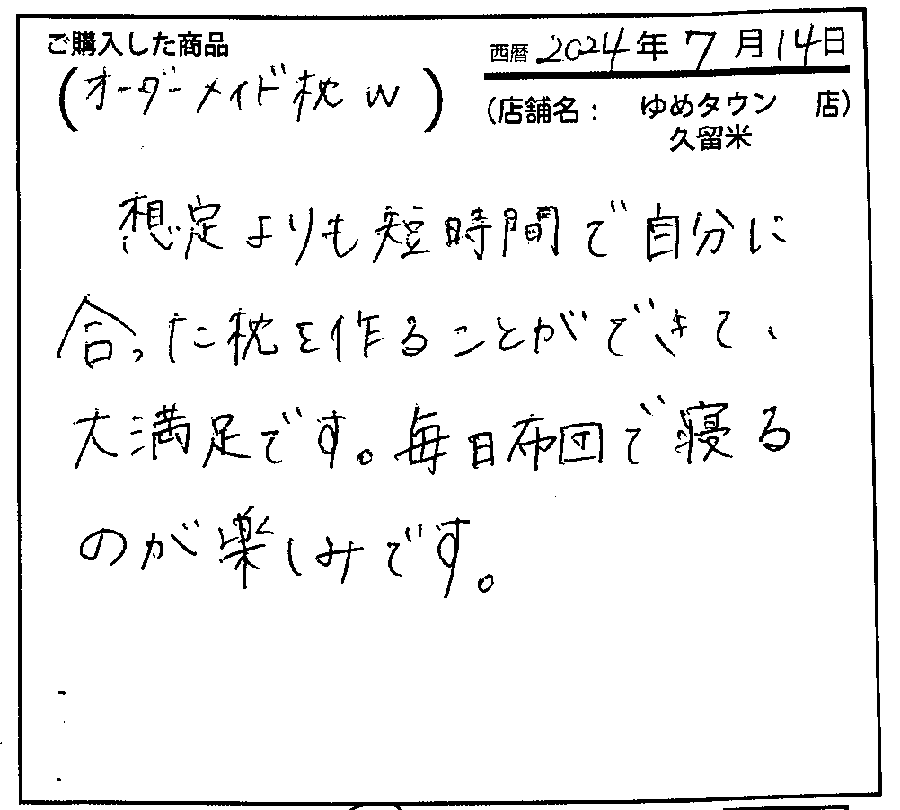 ご購入した商品
(オーダーメイド枕W)
西暦 2024年7月14日
(店舗名： ゆめタウン 店)
久留米
想定よりも短時間で自分に
合った枕を作ることができて、
大満足です。毎日布団で寝る
のが楽しみです。